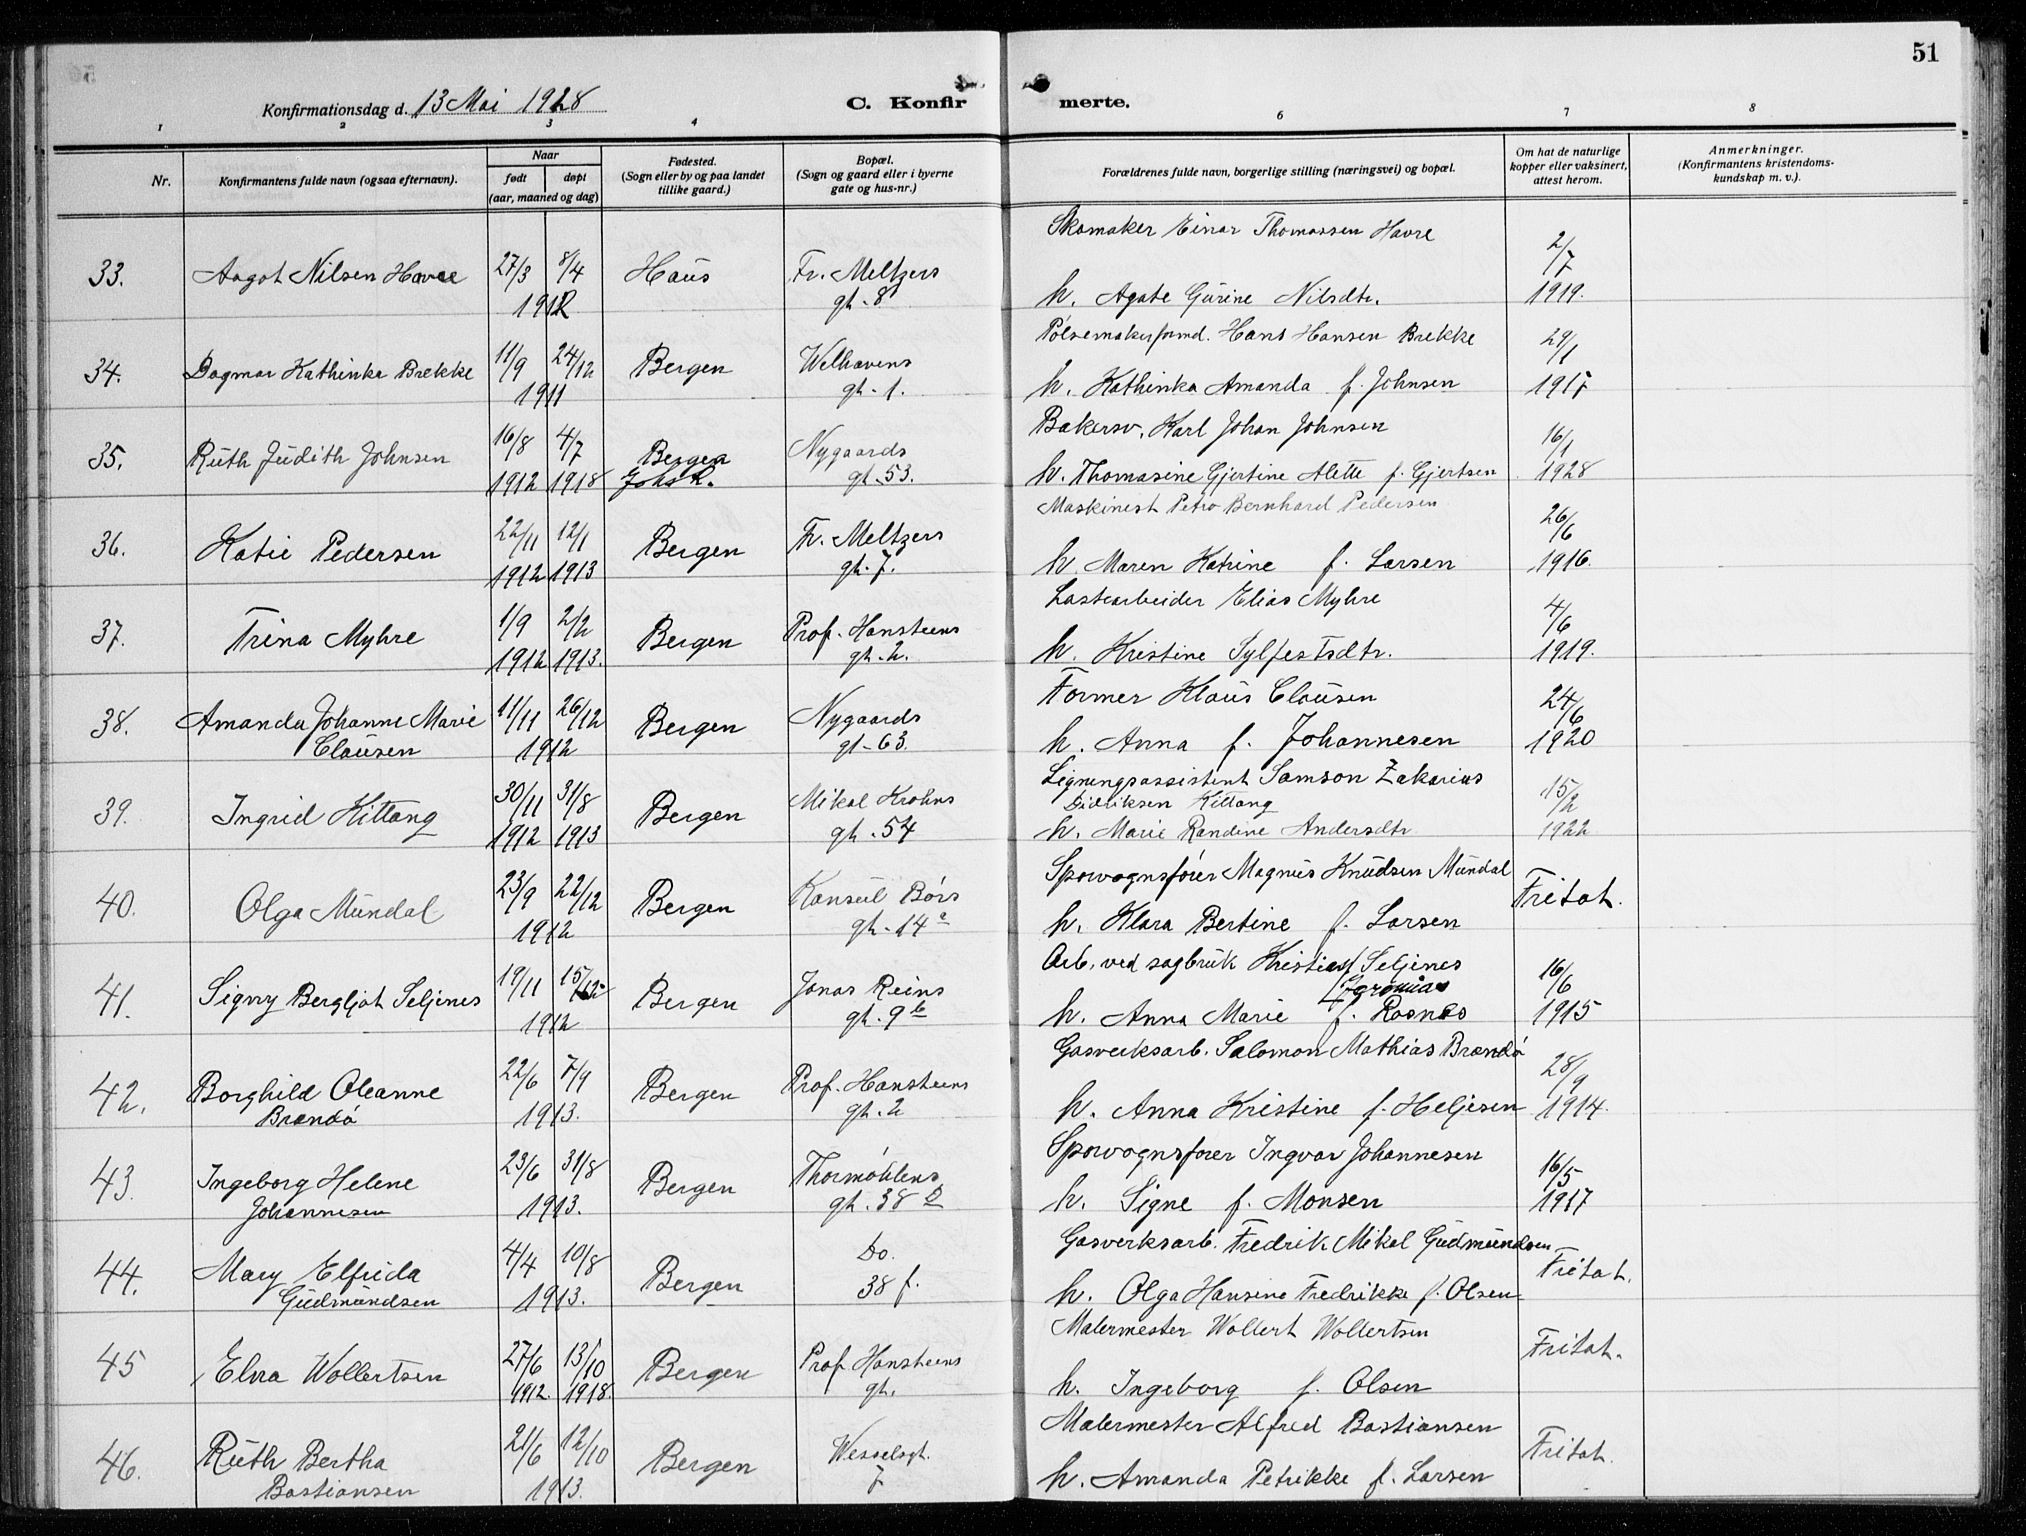 51
Konfirmationsdag d. 13 Mai 1928
C. Konfirmerte.
1 2 3 4 6 7 8
Nr.
Konfirmantens fulde navn (ogsaa efternavn).
Naar
født døpt
(aar, maaned og dag)
Fødested.
(Sogn eller by og paa landet
tillike gaard.)
Bopæl.
(Sogn og gaard eller i byerne
gate og hus-nr.)
Forældrenes fulde navn, borgerlige stilling (næringsvei) og bopæl.
Om hat de naturlige
kopper eller vaksinert,
attest herom.
Anmerkninger.
(Konfirmantens kristendoms-
kundskap m. v.).
Skomaker Einar Thomassen Havre
33. Aagot Nilsen Havre 27/3 8/4 Haus Fr. Meltzers 2/7
1912 gt. 8 h. Agate Gurine Nilsdtr. 1919.
Pølsemakerformd. Hans Hansen Brekke
34. Dagmar Kathinka Brekke 11/9 24/12 Bergen Welhavens 29/1
1911 gt. 1. h. Kathinka Amanda f. Johnsen 1917
Bakersv. Karl Johan Johnsen
35. Ruth Judith Johnsen 16/8 4/7 Bergen Nygaards 16/1
1912 1918 Johs K. gt. 53. h. Thomasine Gjertine Alette f. Gjertsen 1928
Maskinist Petro Bernhard Pedersen
36. Katie Pedersen 22/11 12/1 Bergen Fr. Meltzers 26/6
1912 1913 gt. 7. h. Maren Katrine f. Larsen 1916
Lastearbeider Elias Myhre
37. Trina Myhre 1/9 2/2 Bergen Prof. Hansteens 4/6
1912 1913. gt. 2. h. Kristine Sylfestsdtr. 1919.
Former Klaus Clausen
38. Amanda Johanne Marie 11/11 26/12 Bergen Nygaards 24/6
Clausen 1912 gt. 63. h. Anna f. Johannesen 1920
Ligningsassistent Samson Zakarius
Didriksen Kittang
39. Ingrid Kittang 30/11 31/8 Bergen Mikal Krohns 15/2
1912 1913 gt. 54 h. Marie Randine Andersdtr. 1922
Sporvognsfører Magnus Knudsen Mundal
40. Olga Mundal 23/9 22/12 Bergen Konsul Børs Fritat.
1912 gt. 14 a h. Klara Bertine f. Larsen
Arb. ved sagbruk Kristian Seljenes
41. Signy Bergljot Seljenes 19/11 15/12 Bergen Jonas Reins 16/6
1912 gt. 9 b h. Anna Marie f. Rosnes 1915
Gasverksarb. Salomon Mathias Brandø
42. Borghild Oleanne 22/6 7/9 Bergen Prof. Hansteens 28/9
Brandø 1913. gt. 2 h. Anna Kristine f. Heljesen 1914.
Sporvognsfører Ingvar Johannesen
43. Ingeborg Helene 23/6 31/8 Bergen Thormøhlens 16/5
Johannesen 1913. gt. 38 D h. Signe f. Monsen 1917
Gasverksarb. Fredrik Mikal Gudmundsen
44. Mary Elfrida 4/4 10/8 Bergen Do. Fritat.
Gudmundsen 1913. 38 f. h. Olga Hansine Fredrikke f. Olsen
Malermester Wollert Wollertsen
45 Elna Wollertsen 27/6 13/10 Bergen Prof. Hansteens Fritat.
1912. 1918. gt. h. Ingeborg f. Olsen
Malermester Alfred Bastiansen
46. Ruth Bertha 21/6 12/10 Bergen Wesselsgt. Fritat.
Bastiansen 1913. 7 h. Amanda Petrikke f. Larsen